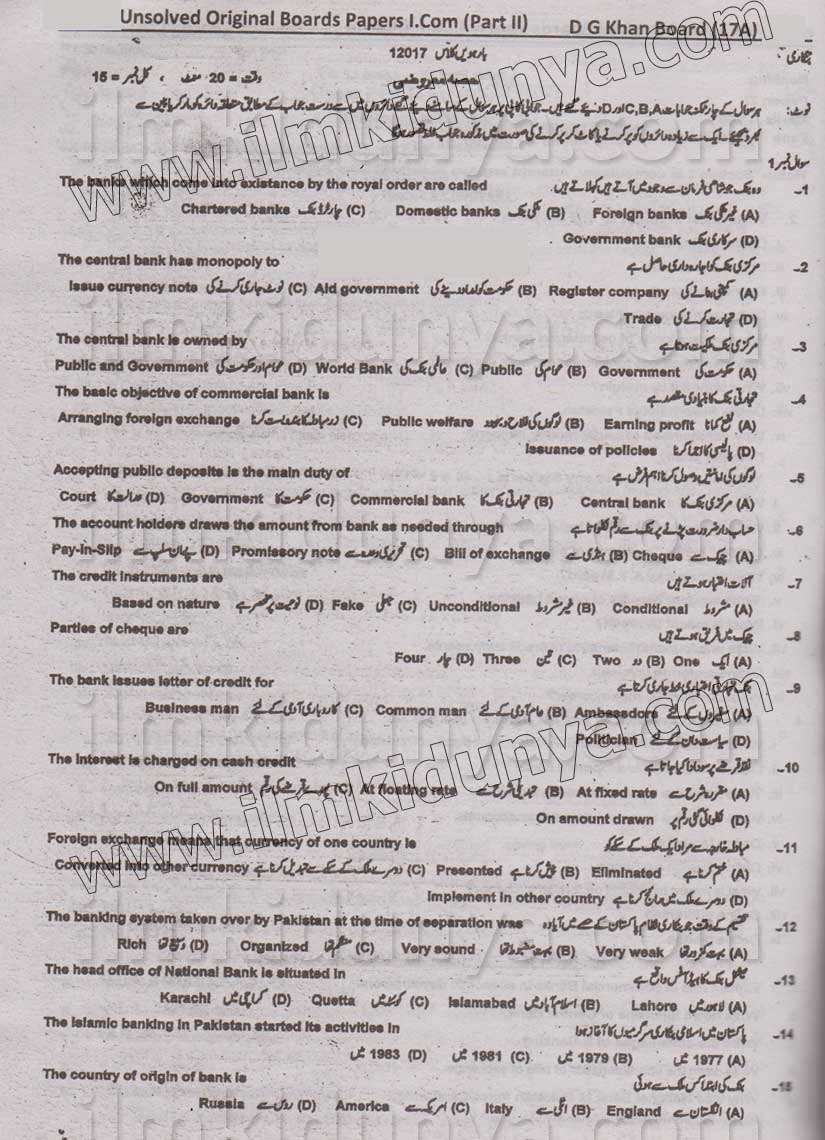 Unsolved Original Boards Papers I.Com (Part II) D G Khan Board (17A)
بنکاری بارہویں کلاس 12017
حصہ معروضی وقت = 20 منٹ ، کل نمبر = 15
نوٹ: ہر سوال کے چار ممکنہ جوابات C,B,A اور D دیئے گئے ہیں۔ جوابی کاپی پر ہر سوال کے سامنے دیئے گئے دائروں میں سے درست جواب کے مطابق متعلقہ دائرہ کو مارکر یا پین سے
بھر دیجئے۔ ایک سے زیادہ دائروں کو پُر کرنے یا کاٹ کر پُر کرنے کی صورت میں مذکورہ جواب غلط تصور ہوگا
سوال نمبر 1
1- وہ بنک جو شاہی فرمان سے وجود میں آتے ہیں کہلاتے ہیں The banks which come into existance by the royal order are called
(A) غیر ملکی بنک Foreign banks (B) ملکی بنک Domestic banks (C) چارٹرڈ بنک Chartered banks
(D) سرکاری بنک Government bank
2- مرکزی بنک کو اجارہ داری حاصل ہے The central bank has monopoly to
(A) کمپنی بنانے کی Register company (B) حکومت کو امداد دینے کی Aid government (C) نوٹ جاری کرنے کی Issue currency note
(D) تجارت کرنے کی Trade
3- مرکزی بنک ملکیت ہوتا ہے The central bank is owned by
(A) حکومت کی Government (B) عوام کی Public (C) عالمی بنک کی World Bank (D) عوام اور حکومت کی Public and Government
4- تجارتی بنک کا بنیادی مقصد ہے The basic objective of commercial bank is
(A) نفع کمانا Earning profit (B) لوگوں کی فلاح و بہبود Public welfare (C) زرمبادلہ کا بندوبست کرنا Arranging foreign exchange
(D) پالیسی کا اجرا کرنا Issuance of policies
5- لوگوں کی امانتیں وصول کرنا اہم فرض ہے Accepting public deposits is the main duty of
(A) مرکزی بنک کا Central bank (B) تجارتی بنک کا Commercial bank (C) حکومت کا Government (D) عدالت کا Court
6- حساب دار ضرورت پڑنے پر بنک سے رقم نکلواتا ہے The account holders draws the amount from bank as needed through
(A) چیک سے Cheque (B) ہنڈی سے Bill of exchange (C) تحریری وعدہ سے Promissory note (D) پے ان سلپ سے Pay-in-Slip
7- آلات اعتبار ہوتے ہیں The credit instruments are
(A) مشروط Conditional (B) غیر مشروط Unconditional (C) جعلی Fake (D) نوعیت پر منحصر ہے Based on nature
8- چیک میں فریق ہوتے ہیں Parties of cheque are
(A) ایک One (B) دو Two (C) تین Three (D) چار Four
9- بنک تجارتی اعتباری خط جاری کرتا ہے The bank issues letter of credit for
(A) سفیروں کے لئے Ambassdors (B) عام آدمی کے لئے Common man (C) کاروباری آدمی کے لئے Business man
(D) سیاست دان کے لئے Politician
10- نقد قرضے پر سود لگایا جاتا ہے The interest is charged on cash credit
(A) مقررہ شرح سے At fixed rate (B) تبدیلی شرح سے At floating rate (C) پورے قرضے کی رقم On full amount
(D) نکلوائی گئی رقم پر On amount drawn
11- مبادلہ خارجہ سے مراد ایک ملک کے سکے کو Foreign exchange means that currency of one country is
(A) ختم کرنا ہے Eliminated (B) پیش کرنا ہے Presented (C) دوسرے ملک کے سکے سے تبدیل کرنا ہے Converted into other currency
(D) دوسرے ملک میں رائج کرنا ہے Implement in other country
12- تقسیم کے وقت جو بنکاری نظام پاکستان کے حصے میں آیا وہ The banking system taken over by Pakistan at the time of separation was
(A) بہت کمزور تھا Very weak (B) بہت مضبوط تھا Very sound (C) منظم تھا Organized (D) وسیع تھا Rich
13- نیشنل بنک کا ہیڈ آفس واقع ہے The head office of National Bank is situated in
(A) لاہور میں Lahore (B) اسلام آباد میں Islamabad (C) کوئٹہ میں Quetta (D) کراچی میں Karachi
14- پاکستان میں اسلامی بنکاری سرگرمیوں کا آغاز ہوا The Islamic banking in Pakistan started its activities in
(A) 1977 میں (B) 1979 میں (C) 1981 میں (D) 1983 میں
15- بنک کی ابتدا کس ملک سے ہوئی The country of origin of bank is
(A) انگلستان سے England (B) اٹلی سے Italy (C) امریکہ سے America (D) روس سے Russia
www.ilmkidunya.com